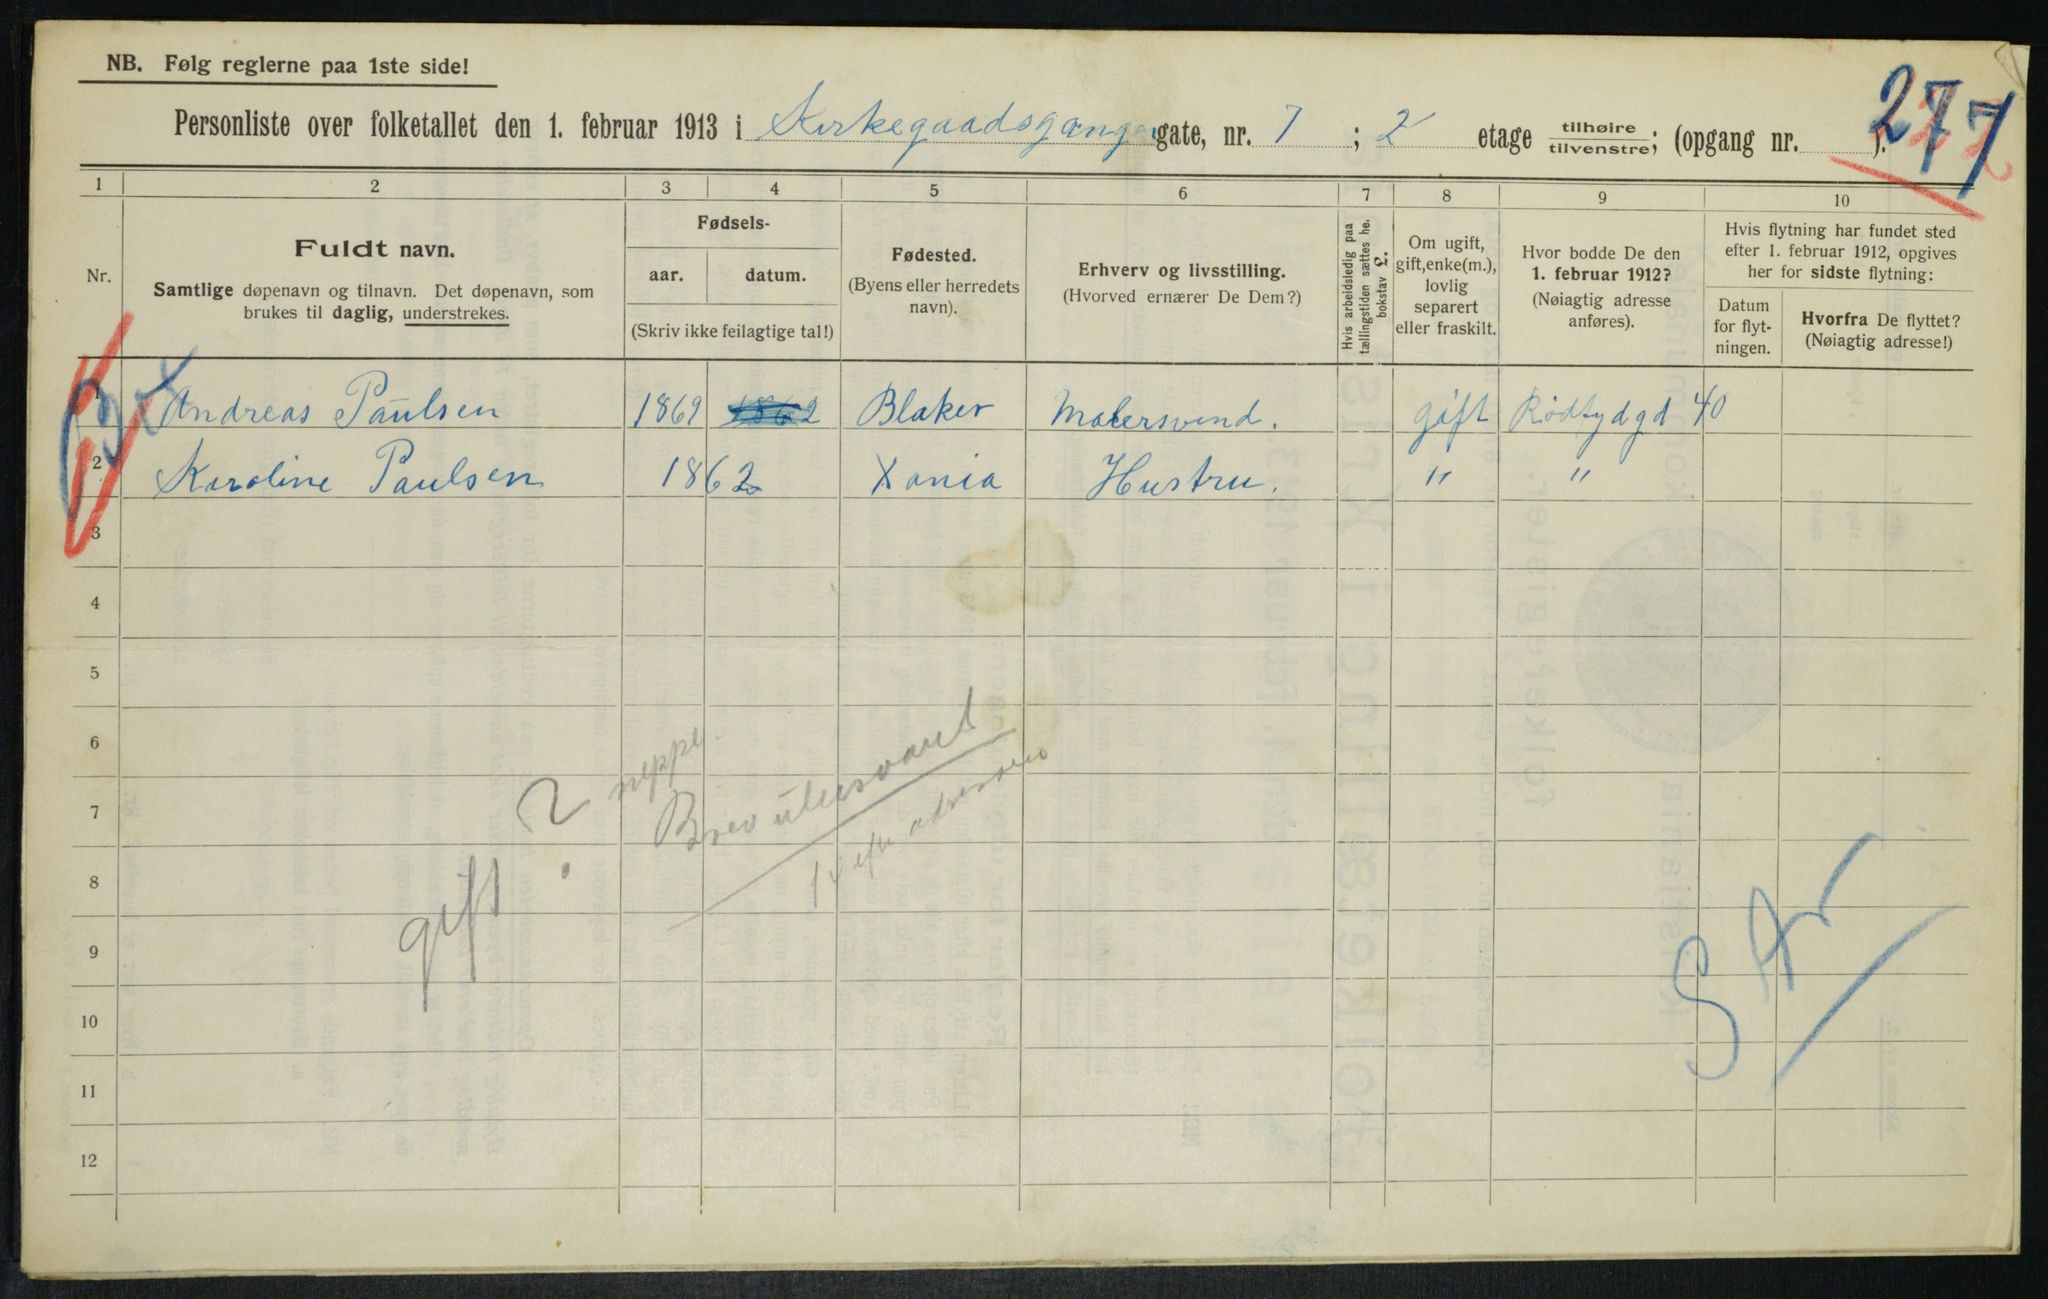 NB. Følg reglerne paa 1ste side!
277
Personliste over folketallet den 1. februar 1913 i Kirkegaadsgangen gate, nr. 7; 2 etage tilhøire tilvenstre; (opgang nr. ).
1 2 3 4 5 6 7 8 9 10
Nr.
Fuldt navn.
Samtlige døpenavn og tilnavn. Det døpenavn, som
brukes til daglig, understrekes.
Fødsels-
aar. datum.
(Skriv ikke feilagtige tal!)
Fødested.
(Byens eller herredets
navn).
Erhverv og livsstilling.
(Hvorved ernærer De Dem?)
Hvis arbeidsledig paa
tællingstiden sættes he.
bokstav L.
Om ugift,
gift, enke(m.),
lovlig
separert
eller fraskilt.
Hvor bodde De den
1. februar 1912?
(Nøiagtig adresse
anføres).
Hvis flytning har fundet sted
efter 1. februar 1912, opgives
her for sidste flytning:
Datum
for flyt-
ningen.
Hvorfra De flyttet?
(Nøiagtig adresse!)
1 Andreas Paulsen 1869 1862 Blaker Malersvend. gift Rødfydgd 40
2 Karoline Paulsen 1862 Xania Hustru. " "
3
4
5
6
7
8
9
10
11
12
gift ? neppe.
Brev ubesvaret